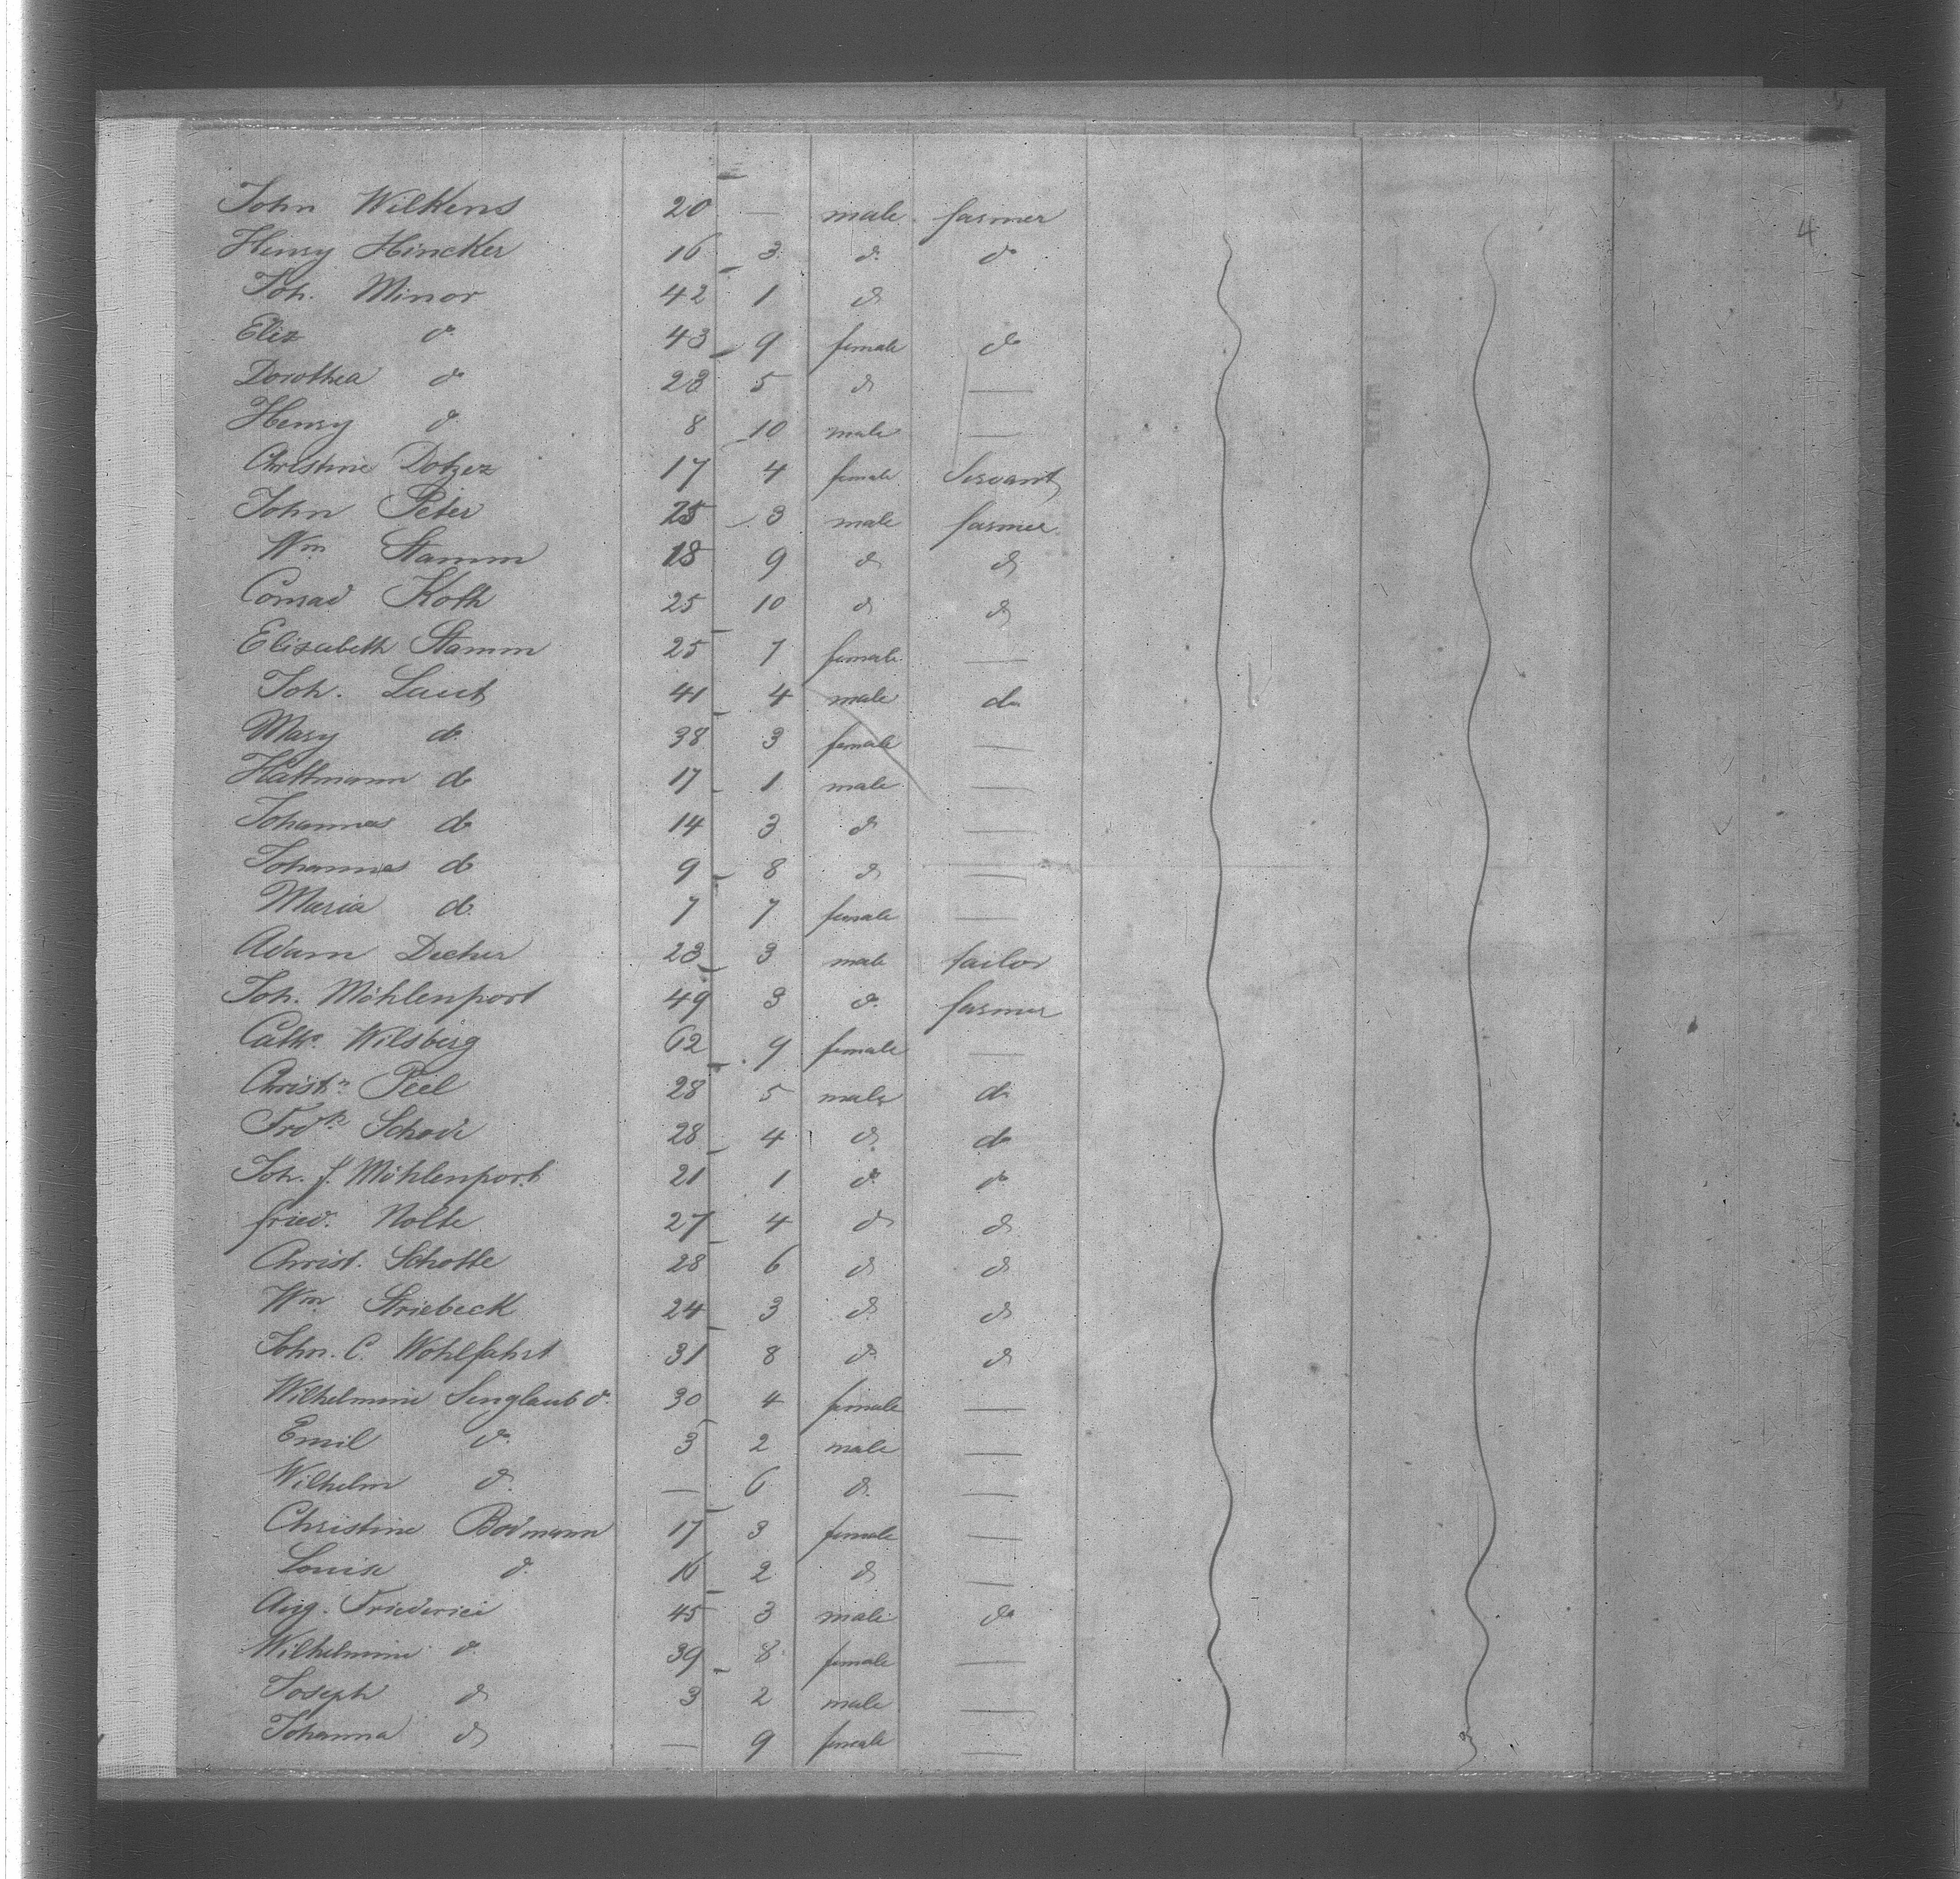 4
John Wilkens 20 — male farmer
Henry Hincker 16 3 do do
Joh. Minor 42 1 do
Eliz do 43 9 female do
Dorothea do 23 5 do —
Henry do 8 10 male —
Christine Dotzez 17 4 female Servant
John Peter 25 3 male farmer
Wm Stamm 18 9 do do
Conrad Koth 25 10 do do
Elisabeth Stamm 25 7 female —
Joh. Laut 41 4 male do
Mary do 38 3 female —
Hattmann do 17 1 male —
Johannes do 14 3 do —
Johannes do 9 8 do —
Maria do 7 7 female —
Adam Decher 23 3 male tailor
Joh. Möhlenport 49 3 do farmer
Cathe Wilsberg 62 9 female —
Christn Peel 28 5 male do
Frdk Schode 28 4 do do
Joh. J. Möhlenport 21 1 do do
fried. Nolte 27 4 do do
Christ. Schotte 28 6 do do
Wm Striebeck 24 3 do do
John. C. Wohlfahrt 31 8 do do
Wilhelmine Senglaub do 30 4 female —
Emil do 3 2 male —
Wilhelm do — 6 do —
Christine Bodmann 17 3 female —
Louise do 16 2 do —
Aug. Friederici 45 3 male do
Wilhelmine do 39 8 female —
Joseph do 3 2 male —
Johanna do — 9 female —